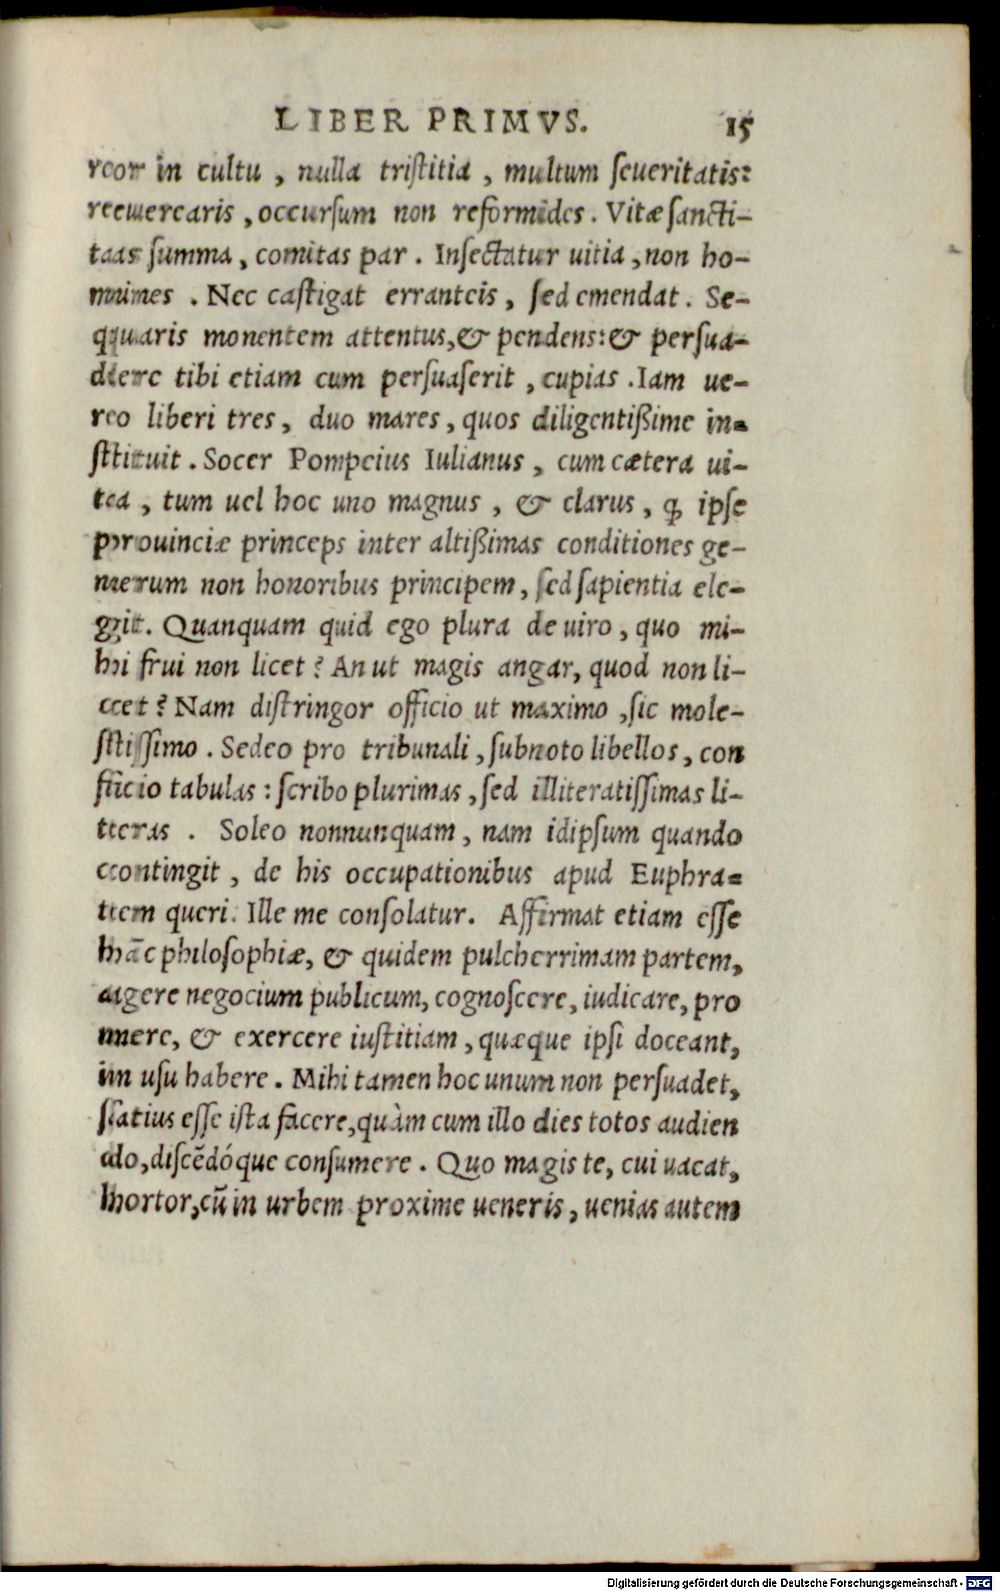 LIBER PRIMVS. 15
ror in cultu, nulla tristitia, multum seueritatis:
reuerearis, occursum non reformides. Vitæ sancti-
tas summa, comitas par. Insectatur uitia, non ho-
mines. Nec castigat erranteis, sed emendat. Se-
quaris monentem attentus, & pendens: & persua-
dere tibi etiam cum persuaserit, cupias. Iam ue-
ro liberi tres, duo mares, quos diligentißime in-
stituit. Socer Pompeius Iulianus, cum cætera ui-
ta, tum uel hoc uno magnus, & clarus, ꝙ ipse
prouinciæ princeps inter altißimas conditiones ge-
nerum non honoribus principem, sed sapientia ele-
git. Quanquam quid ego plura de uiro, quo mi-
hi frui non licet? An ut magis angar, quod non li-
cet? Nam distringor officio ut maximo, sic mole-
stissimo. Sedeo pro tribunali, subnoto libellos, con
ficio tabulas: scribo plurimas, sed illiteratissimas li-
teras. Soleo nonnunquam, nam idipsum quando
contingit, de his occupationibus apud Euphra-
tem queri. Ille me consolatur. Affirmat etiam esse
hāc philosophiæ, & quidem pulcherrimam partem,
agere negocium publicum, cognoscere, iudicare, pro
mere, & exercere iustitiam, quæque ipsi doceant,
in usu habere. Mihi tamen hoc unum non persuadet,
satius esse ista facere, quàm cum illo dies totos audien
do, discēdóque consumere. Quo magis te, cui uacat,
hortor, cū in urbem proxime ueneris, uenias autem
Digitalisierung gefördert durch die Deutsche Forschungsgemeinschaft - DFG